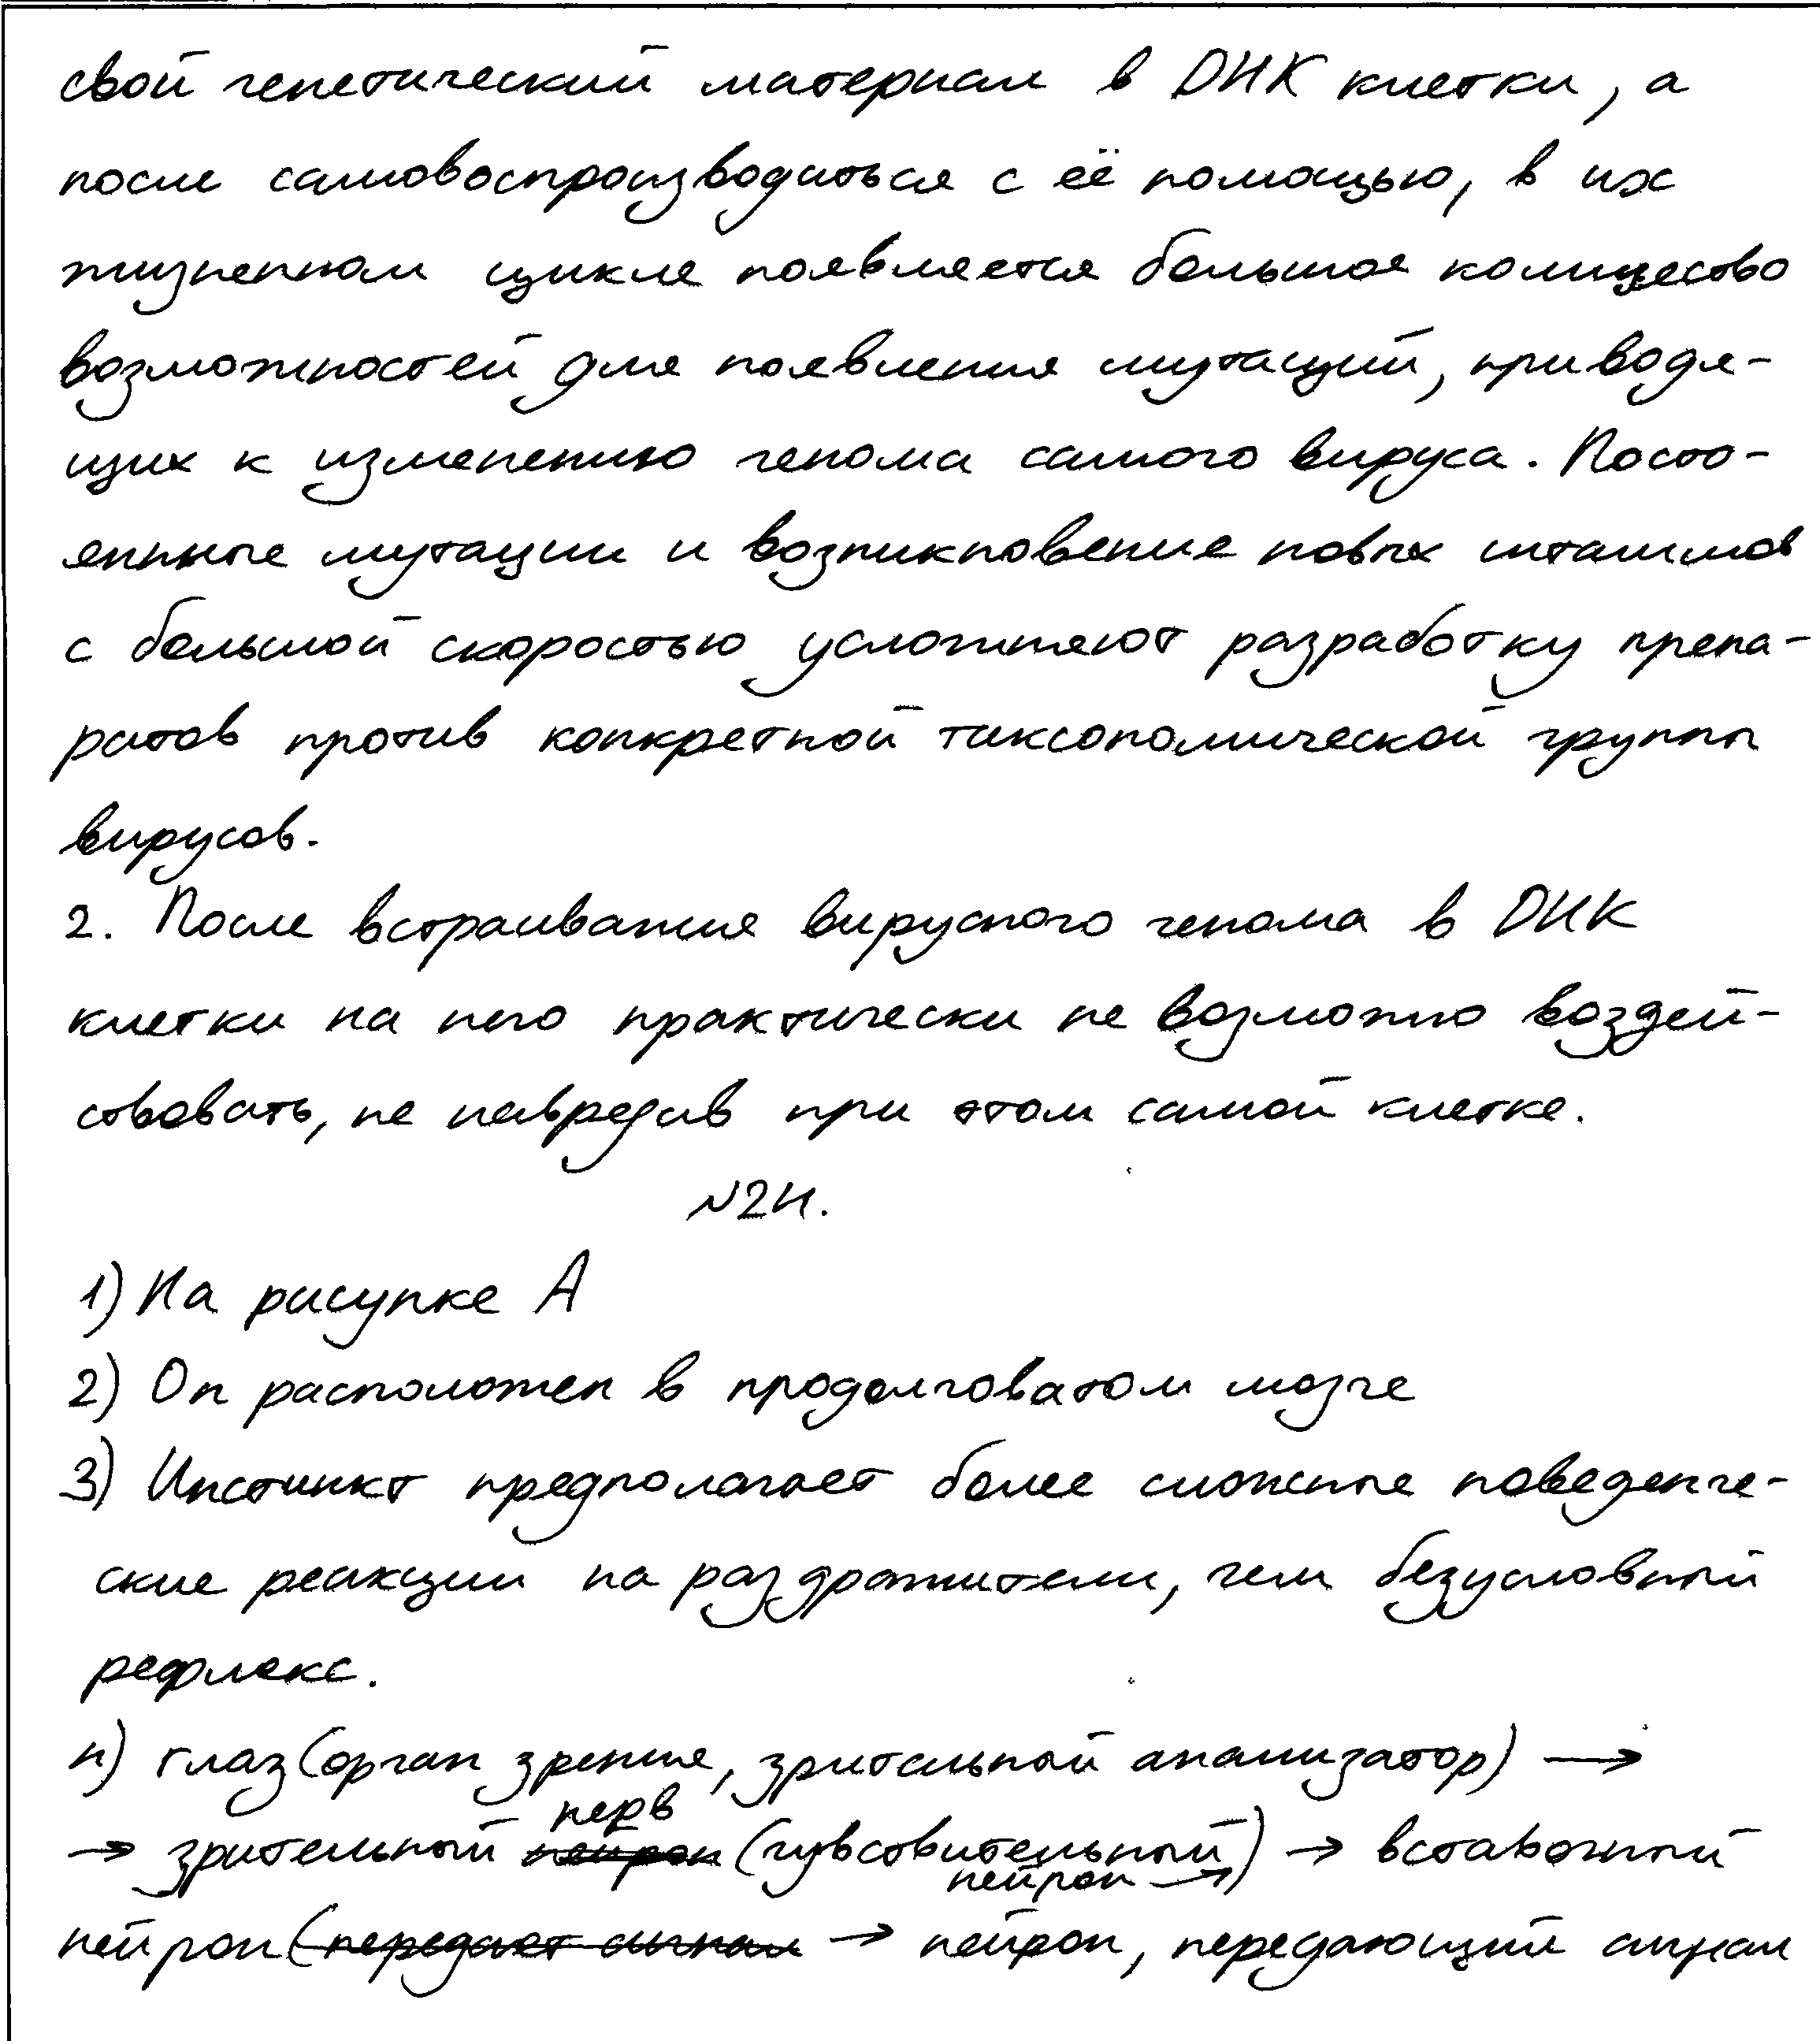 свой генетический материал в ДНК клетки, а
после самовоспроизводиться с её помощью, в их
жизненном цикле появляется большое количество
возможностей для появления мутаций, приводя-
щих к изменению генома самого вируса. Посто-
янные мутации и возникновение новых штаммов
с большой скоростью усложняют разработку препа-
ратов против конкретной таксономической группы
вирусов.
2. После встраивания вирусного генома в ДНК
клетки на него практически не возможно воздей-
ствовать, не навредив при этом самой клетке.
№24.
1) На рисунке А
2) Он расположен в продолговатом мозге
3) Инстинкт предполагает более сложные поведенче-
ские реакции на раздражители, чем безусловный
рефлекс.
4) глаз (орган зрения, зрительный анализатор) →
→ зрительный нерв (чувствительный) → вставочный
нейрон →
нейрон → нейрон, передающий сигнал